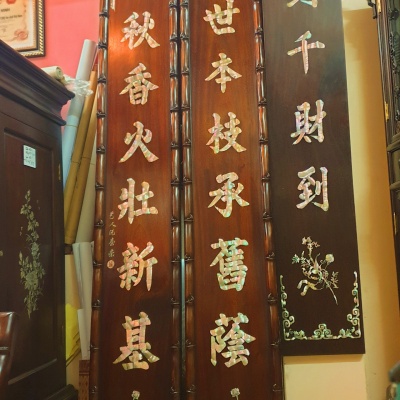 千財到
世本枝承舊蔭
秋香火壯新基